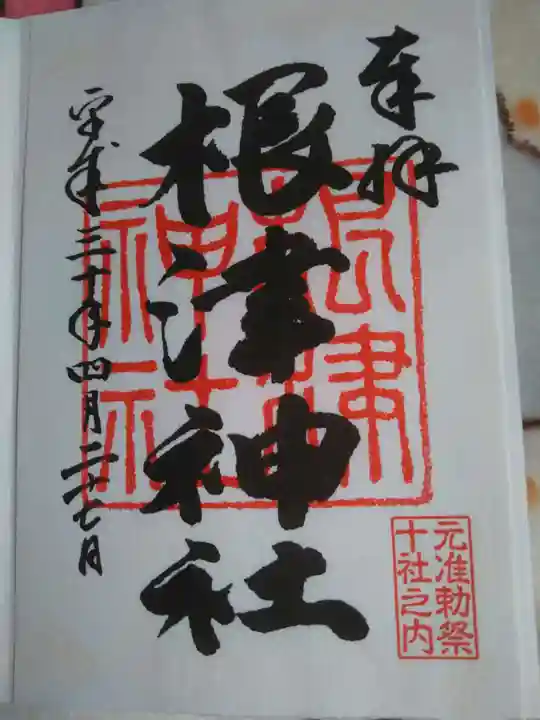 奉拝
根津神社
根津
神社
元准勅祭
十社之内
平成三十年四月二十七日